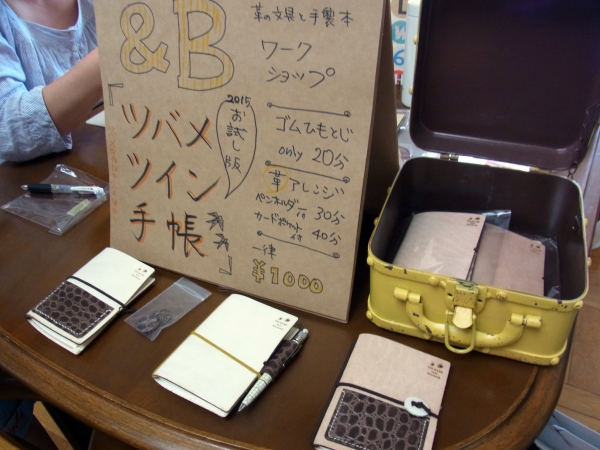 &B
革の文具と手製本
ワーク
ショップ
『ツバメ
ツイン
手帳』
2015
お試し版
ゴムひもとじ
only 20分
革アレンジ
ペンホルダー付 30分
カードポケット付 40分
一律
¥1000